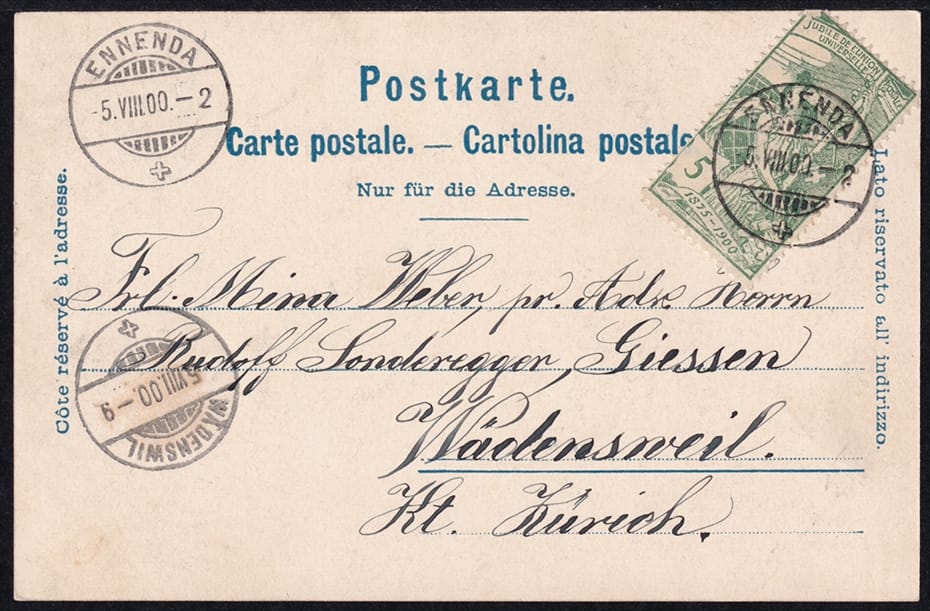 ENNENDA
-5.VIII.00.-2
JUBILÉ DE L'UNION
UNIVERSELLE
5
1875-1900
ENNENDA
5.VIII.00.-2
Postkarte.
Carte postale. — Cartolina postale
Nur für die Adresse.
Côte réservé à l'adresse.
Lato riservato all' indirizzo.
Frl. Mina Weber, pr. Adr. Herrn
Rudolf Sonderegger, Giessen
Wädensweil.
Kt. Zürich.
WÄDENSWIL
5.VIII.00.-9